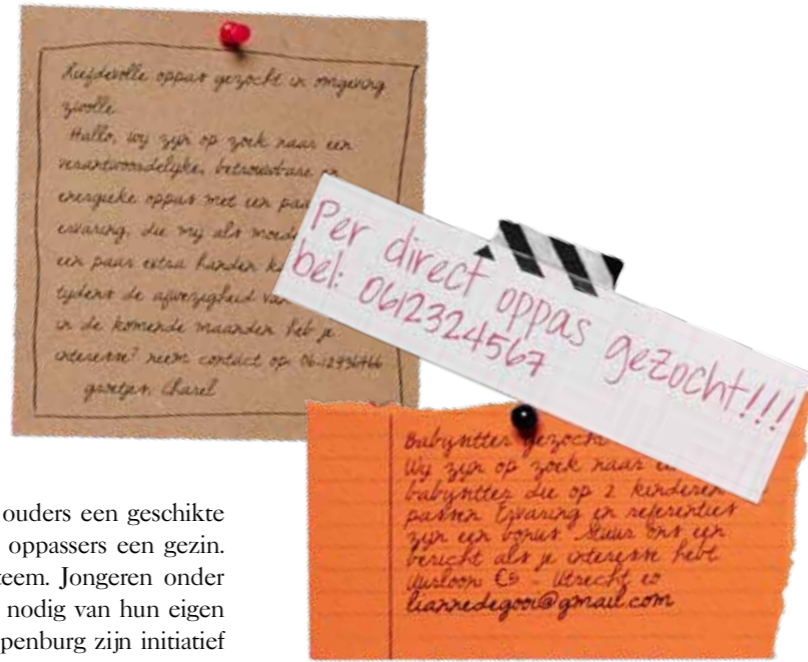 Liefdevolle oppas gezocht in omgeving
zwolle
Hallo, wij zijn op zoek naar een
verantwoordelijke, betrouwbare en
energieke oppas met een paa
ervaring, die mij als moede
een paar extra handen k
tijdens de afwezigheid va
in de komende maanden heb je
interesse? neem contact op
groetjes, Charel
Per direct oppas gezocht!!!
bel: 0612324567
Babysitter gezocht
Wij zijn op zoek naar
babysitter die op 2 kinderen
passen Ervaring en referenties
zijn een bonus Stuur ons een
bericht als je interesse hebt
Uurloon €5 - Utrecht eo
liannedegooi@gmail.com
ouders een geschikte
oppassers een gezin.
teem. Jongeren onder
nodig van hun eigen
ppenburg zijn initiatief